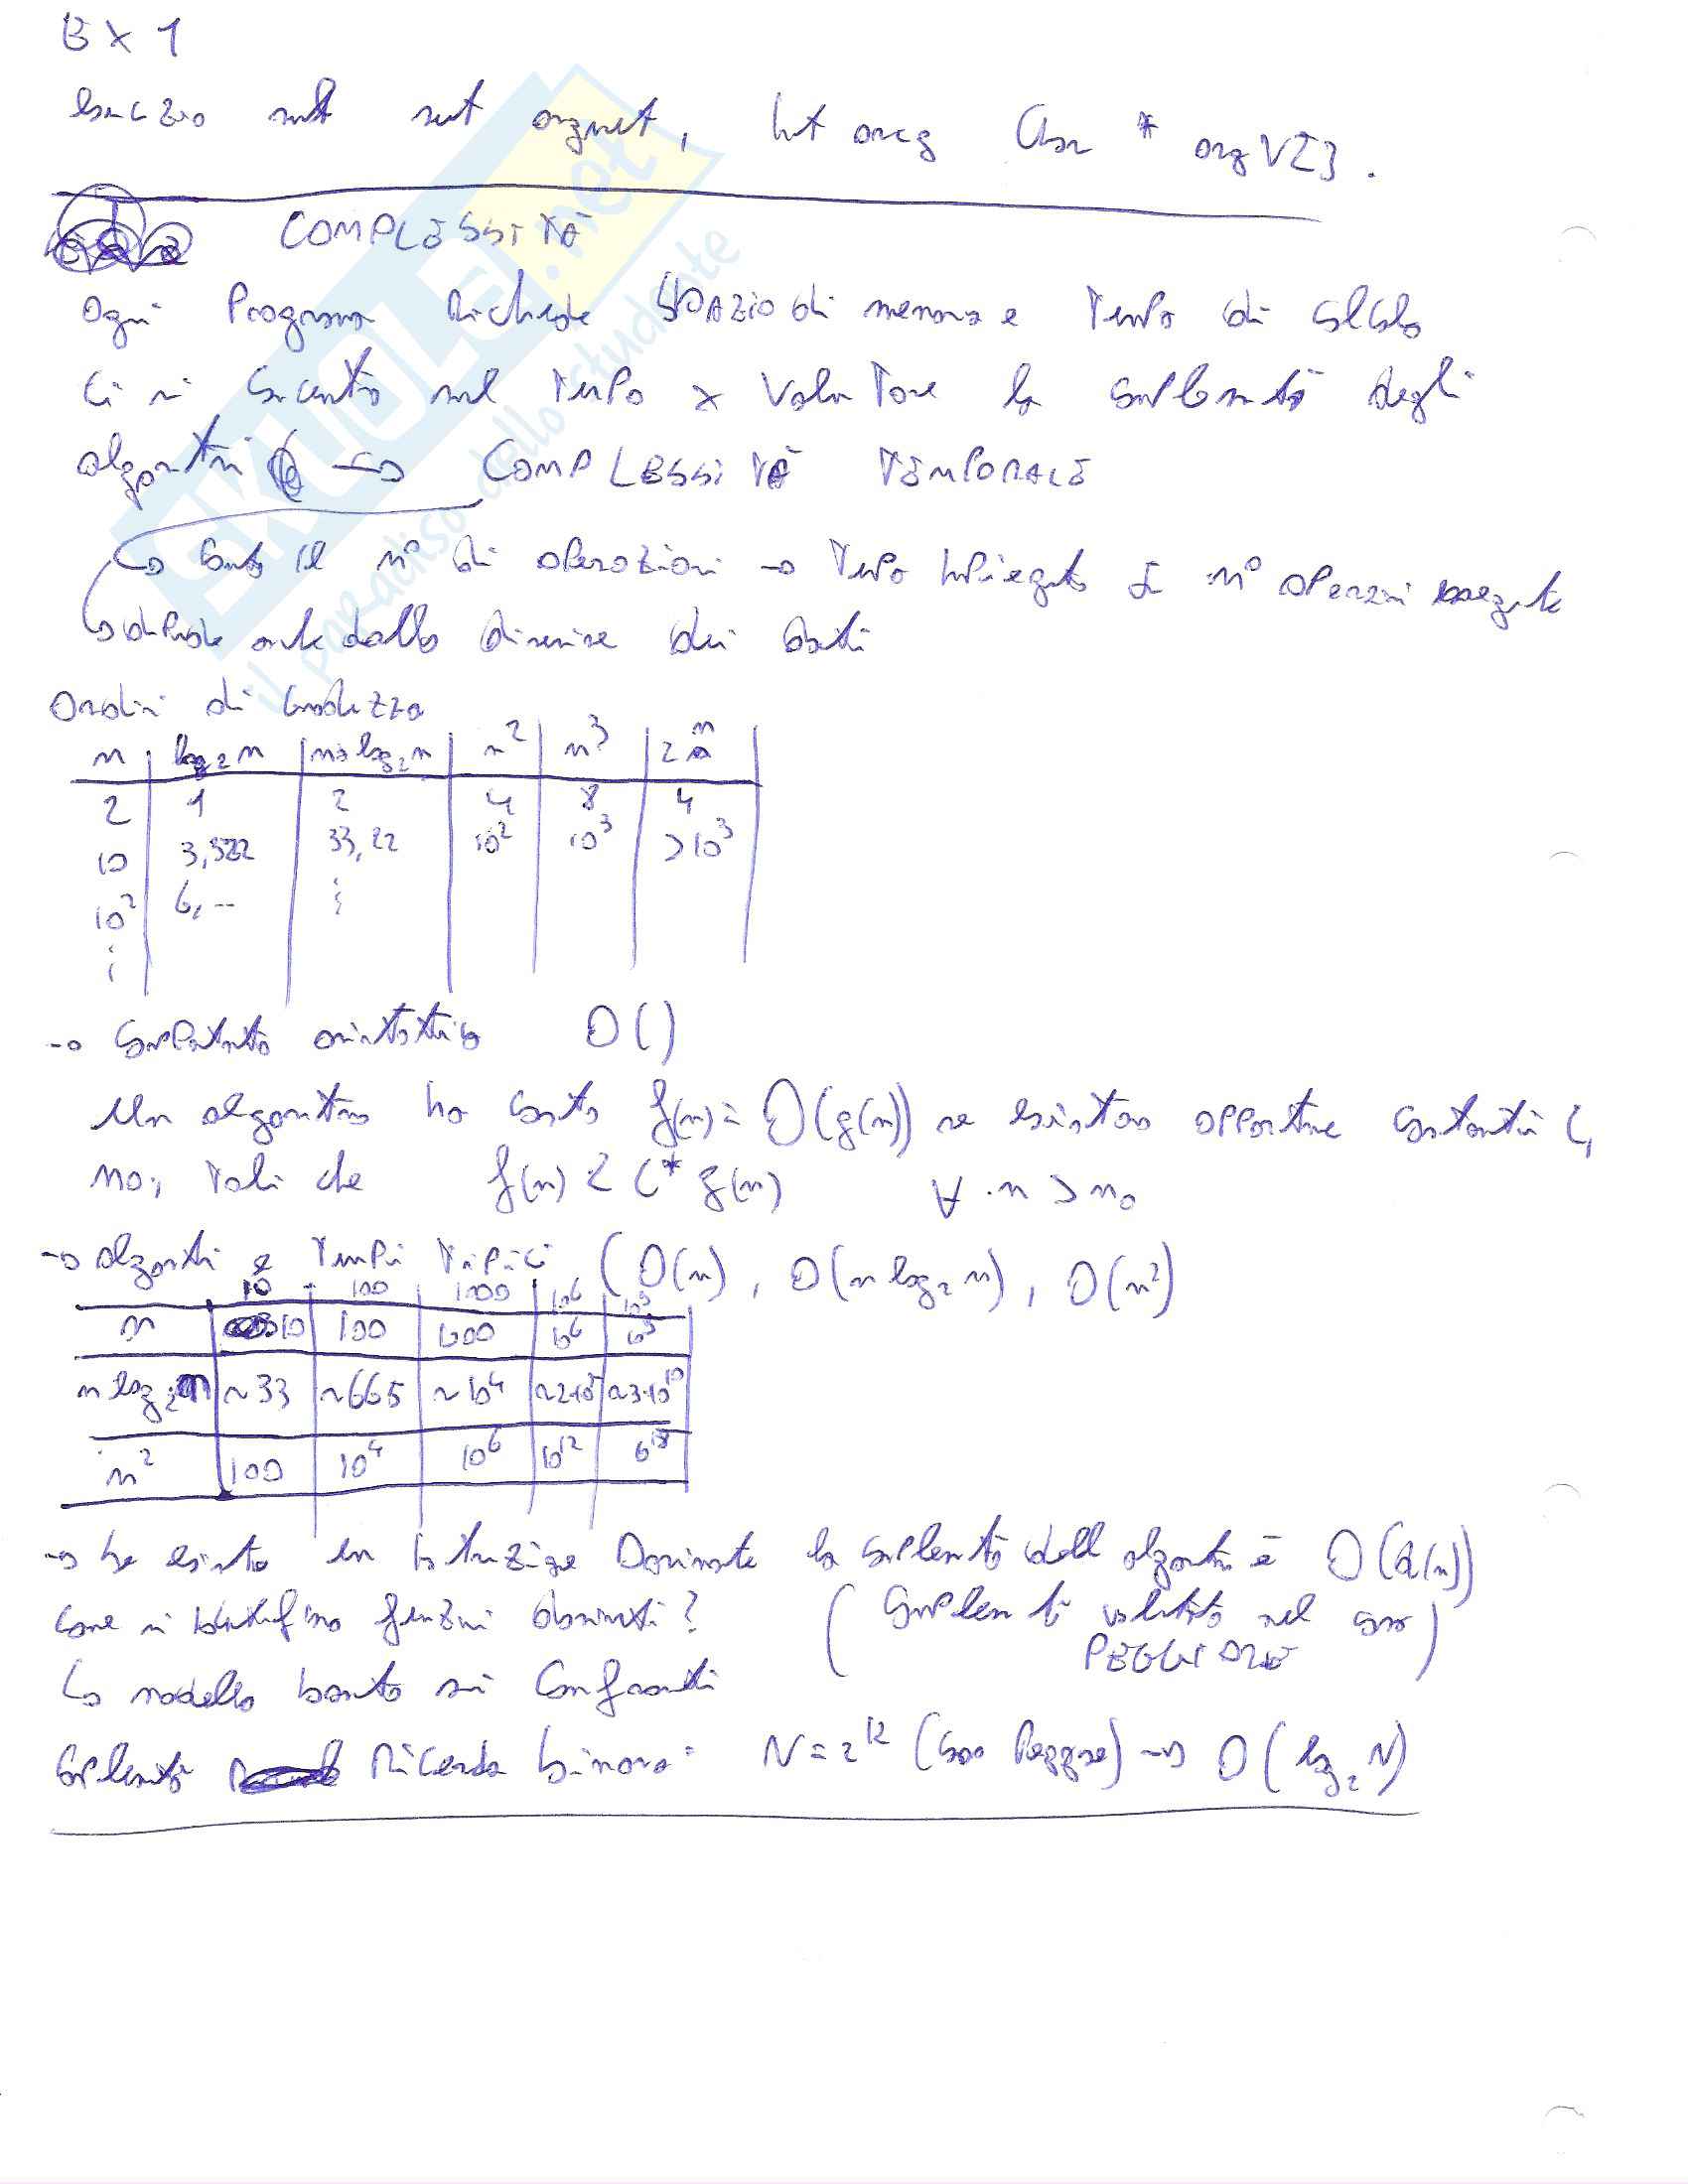 EX 1
int arcg Char * argv[].
COMPLESSITÀ
Ogni Programma Richiede SPAZIO di memoria e Tempo di calcolo
Ci si concentra sul Tempo x valutare la complessità degli
algoritmi → COMPLESSITÀ TEMPORALE
↳ conto il n° di operazioni → Tempo impiegato n° operazioni eseguite
↳ dipende anche dalla dimensione dei dati
Ordini di Grandezza
n | log₂n | n log₂n | n² | n³ | 2ⁿ
2 | 1 | 2 | 4 | 8 | 4
10 | 3,322 | 33,22 | 10² | 10³ | >10³
10² | 6,--
→ comportamento asintotico O()
Un algoritmo ha costo f(n)=O(g(n)) se esistono opportune costanti c,
n₀, tali che f(n) < c* g(n) ∀ n > n₀
→ algoritmi e Tempi Tipici (O(n), O(n log₂ n), O(n²)
10 | 100 | 1000 | 10⁶ | 10⁹
n | 10 | 100 | 1000 | 10⁶ | 10⁹
n log₂n | ~33 | ~665 | ~10⁴ | ~2·10⁷ | ~3·10¹⁰
n² | 100 | 10⁴ | 10⁶ | 10¹² | 10¹⁸
→ Se esiste un istruzione Dominante la complessità dell algoritmo è O(d(n))
come si identificano funzioni dominanti? (Complessità valutata nel caso PEGGIORE)
↳ modello basato sui Confronti
Complessità Ricerca binaria: N=2ᵏ (caso Peggiore) → O(log₂N)
SKUOLA.net
il paradiso dello studente